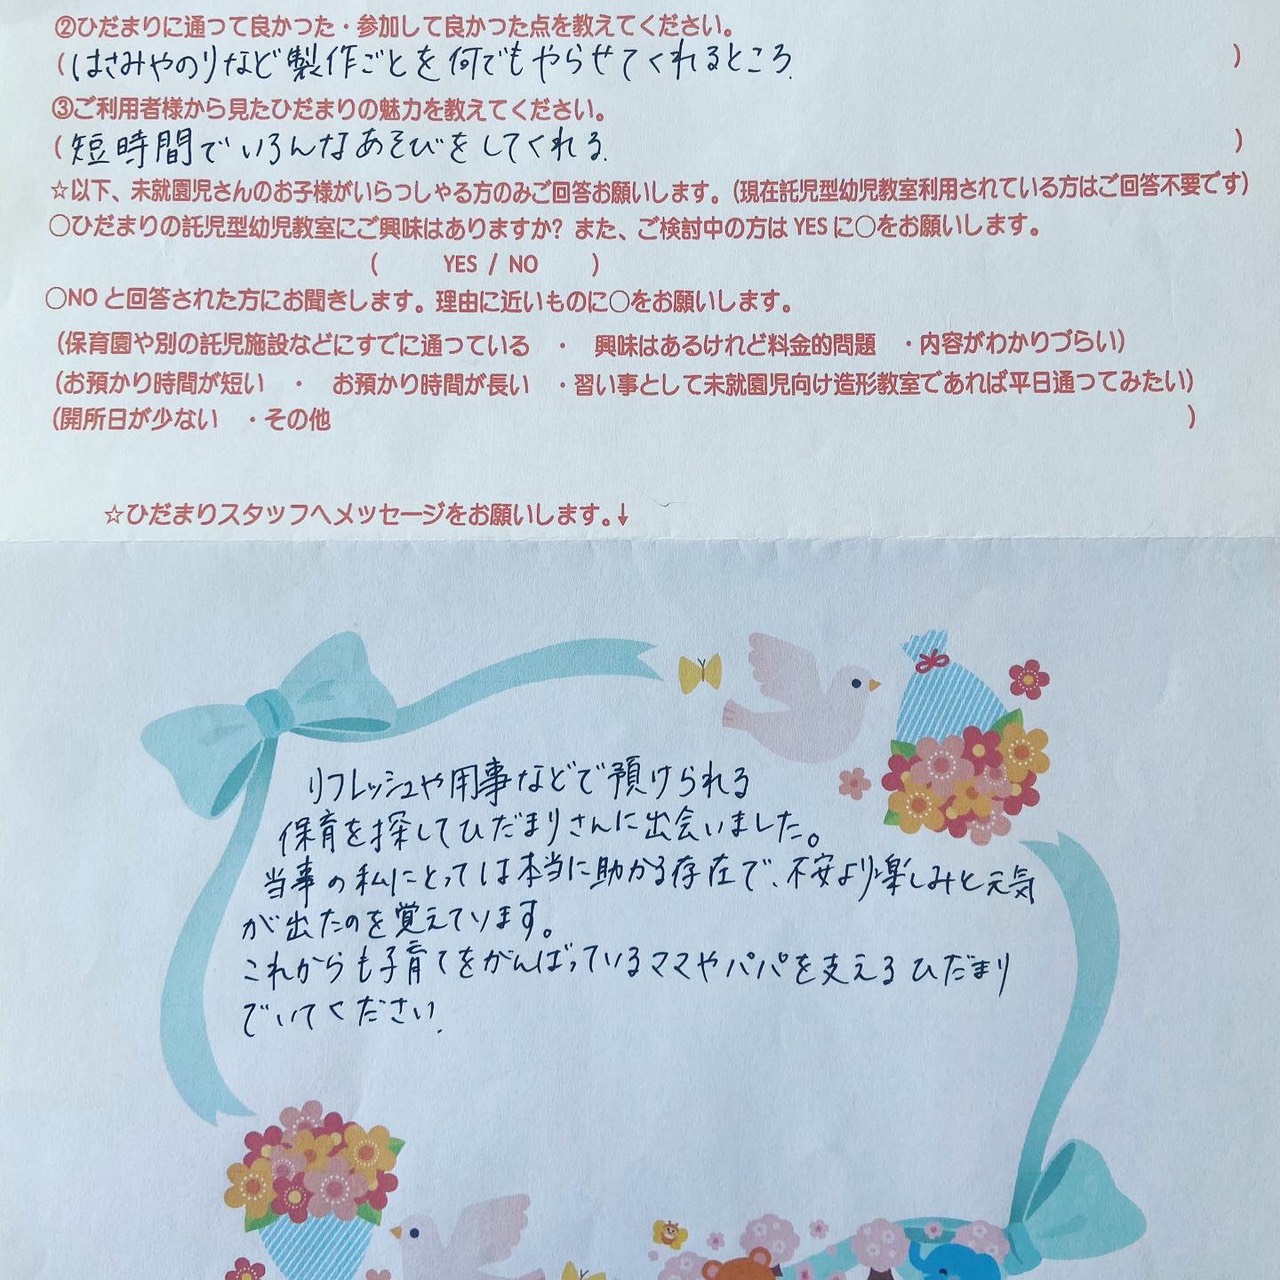 ②ひだまりに通って良かった・参加して良かった点を教えてください。
(はさみやのりなど製作ごとを何でもやらせてくれるところ. )
③ご利用者様から見たひだまりの魅力を教えてください。
(短時間でいろんなあそびをしてくれる. )
☆以下、未就園児さんのお子様がいらっしゃる方のみご回答お願いします。(現在託児型幼児教室利用されている方はご回答不要です)
○ひだまりの託児型幼児教室にご興味はありますか? また、ご検討中の方は YES に○をお願いします。
( YES / NO )
○NO と回答された方にお聞きします。理由に近いものに○をお願いします。
(保育園や別の託児施設などにすでに通っている ・ 興味はあるけれど料金的問題 ・内容がわかりづらい)
(お預かり時間が短い ・ お預かり時間が長い ・習い事として未就園児向け造形教室であれば平日通ってみたい)
(開所日が少ない ・その他 )
☆ひだまりスタッフへメッセージをお願いします。↓
リフレッシュや用事などで預けられる
保育を探してひだまりさんに出会いました。
当事の私にとっては本当に助かる存在で、不安より楽しみと元気
が出たのを覚えています。
これからも子育てをがんばっているママやパパを支えるひだまり
でいてください.